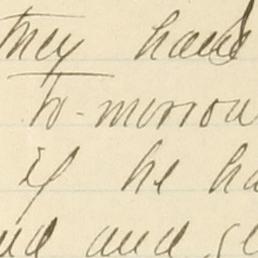 they have
to-morrow
if he ha
and ge